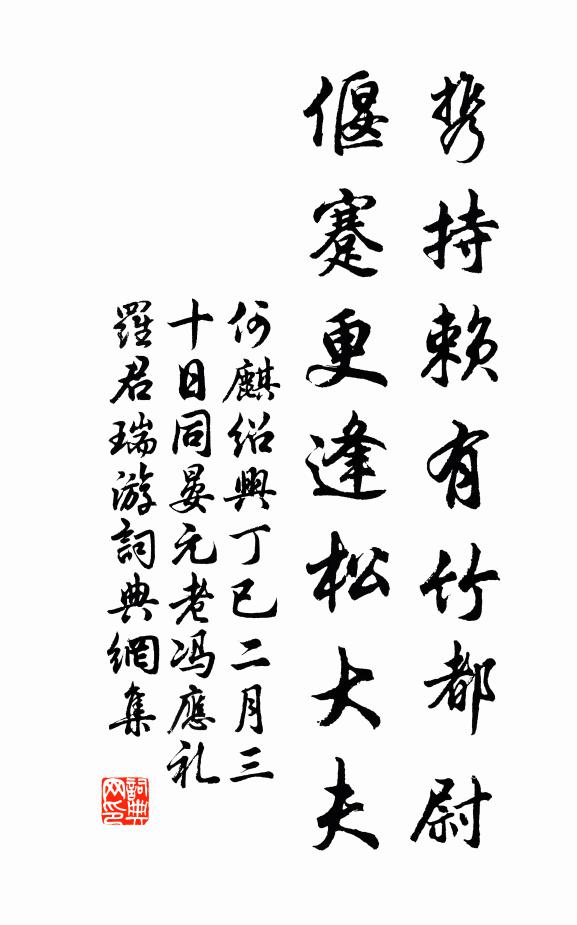 携持赖有竹都尉
偃蹇更逢松大夫
何麒紹興丁巳二月三
十日同晏元老冯應礼
羅君瑞游詞典網集
詞典
网印